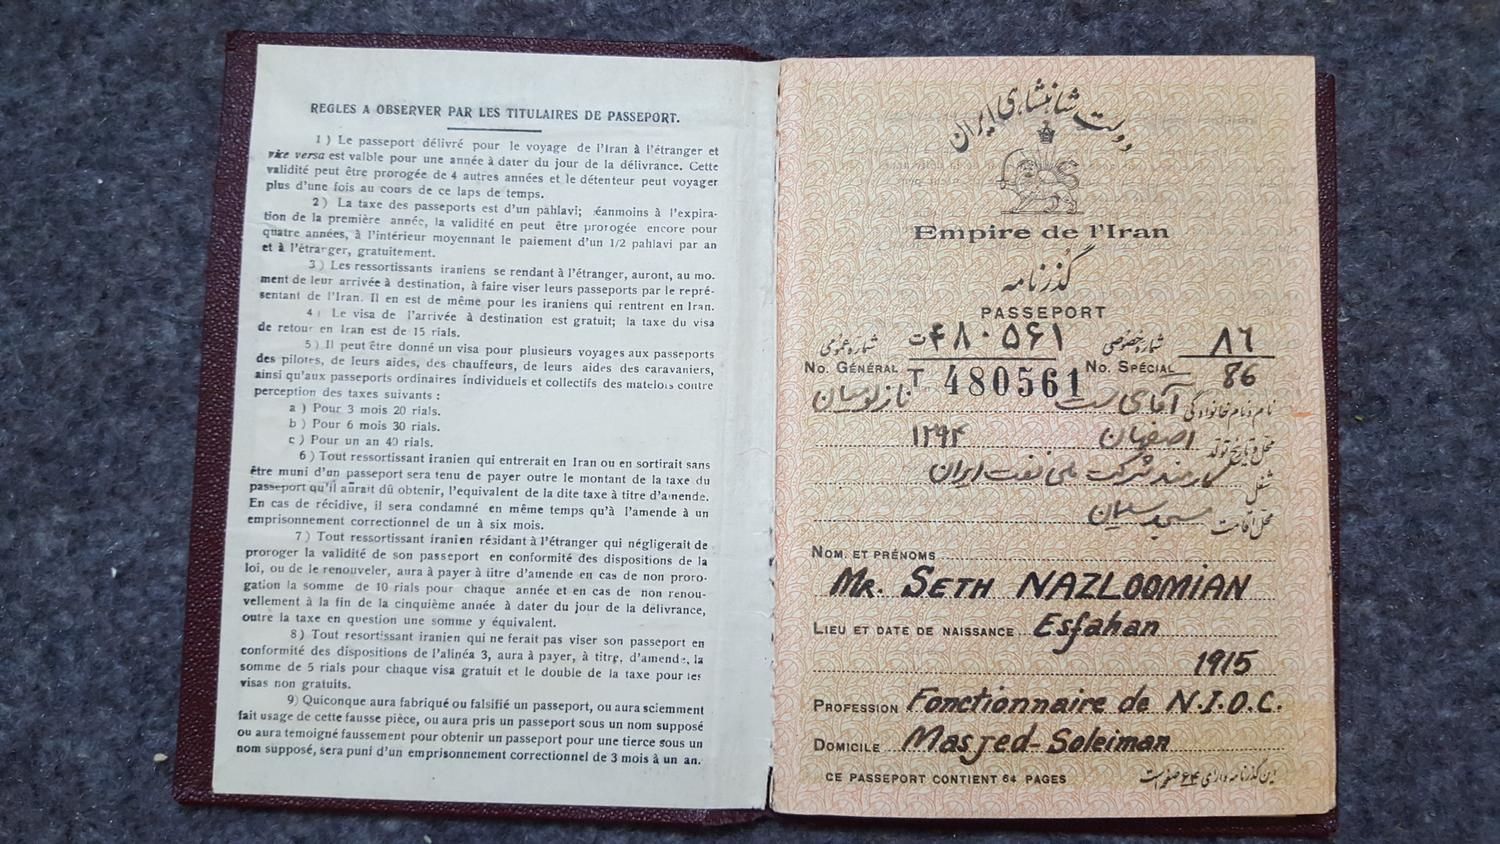 REGLES A OBSERVER PAR LES TITULAIRES DE PASSEPORT.
1 ) Le passeport délivré pour le voyage de l'Iran à l'étranger et
vice versa est valble pour une année à dater du jour de la délivrance. Cette
validité peut être prorogée de 4 autres années et le détenteur peut voyager
plus d'une fois au cours de ce laps de temps.
2 ) La taxe des passeports est d'un pahlavi; éanmoins à l'expira-
tion de la première année, la validité en peut être prorogée encore pour
quatre années, à l'intérieur moyennant le paiement d'un 1/2 pahlavi par an
et à l'étranger, gratuitement.
3 ) Les ressortissants iraniens se rendant à l'étranger, auront, au mo-
ment de leur arrivée à destination, à faire viser leurs passeports par le repré-
sentant de l'Iran. Il en est de même pour les iraniens qui rentrent en Iran.
4 ) Le visa de l'arrivée à destination est gratuit; la taxe du visa
de retour en Iran est de 15 rials.
5 ) Il peut être donné un visa pour plusieurs voyages aux passeports
des pilotes, de leurs aides, des chauffeurs, de leurs aides des caravaniers,
ainsi qu'aux passeports ordinaires individuels et collectifs des matelots contre
perception des taxes suivantes :
a ) Pour 3 mois 20 rials.
b ) Pour 6 mois 30 rials.
c ) Pour un an 40 rials.
6 ) Tout ressortissant iranien qui entrerait en Iran ou en sortirait sans
être muni d'un passeport sera tenu de payer outre le montant de la taxe du
passeport qu'il aurait dû obtenir, l'equivalent de la dite taxe à titre d'amende.
En cas de récidive, il sera condamné en même temps qu'à l'amende à un
emprisonnement correctionnel de un à six mois.
7 ) Tout ressortissant iranien résidant à l'étranger qui négligerait de
proroger la validité de son passeport en conformité des dispositions de la
loi, ou de le renouveler, aura à payer à titre d'amende en cas de non proro-
gation la somme de 10 rials pour chaque année et en cas de non renou-
vellement à la fin de la cinquième année à dater du jour de la délivrance,
outre la taxe en question une somme y équivalent.
8 ) Tout resortissant iranien qui ne ferait pas viser son passeport en
conformité des dispositions de l'alinéa 3, aura à payer, à titre, d'amende, la
somme de 5 rials pour chaque visa gratuit et le double de la taxe pour les
visas non gratuits.
9) Quiconque aura fabriqué ou falsifié un passeport, ou aura sciemment
fait usage de cette fausse pièce, ou aura pris un passeport sous un nom supposé
ou aura temoigné faussement pour obtenir un passeport pour une tierce sous un
nom supposé, sera puni d'un emprisonnement correctionnel de 3 mois à un an.
دولت شاهنشاهی ایران
Empire de l'Iran
گذرنامه
PASSEPORT
شماره خصوصی ۸۶ شماره عمومی ت ۴۸۰۵۶۱
No. GÉNÉRAL T 480561 No. SPÉCIAL 86
نام و نام خانوادگی آقای ست نازلومیان
محل و تاریخ تولد اصفهان ۱۲۹۴
شغل کارمند شرکت ملی نفت ایران
محل اقامت مسجد سلیمان
NOM. ET PRÉNOMS
MR. SETH NAZLOOMIAN
LIEU ET DATE DE NAISSANCE Esfahan
1915
PROFESSION Fonctionnaire de N.I.O.C.
DOMICILE Masjed-Soleiman
CE PASSEPORT CONTIENT 64 PAGES این گذرنامه دارای ۶۴ صفحه است